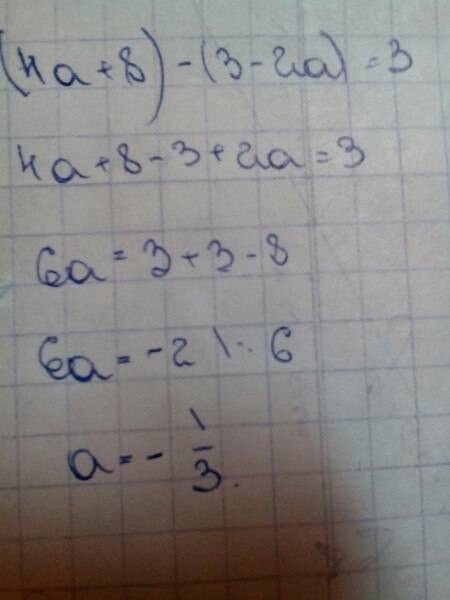 (4a+8)-(3-2a)=3
4a+8-3+2a=3
6a=3+3-8
6a=-2 \: 6
a=-1/3.